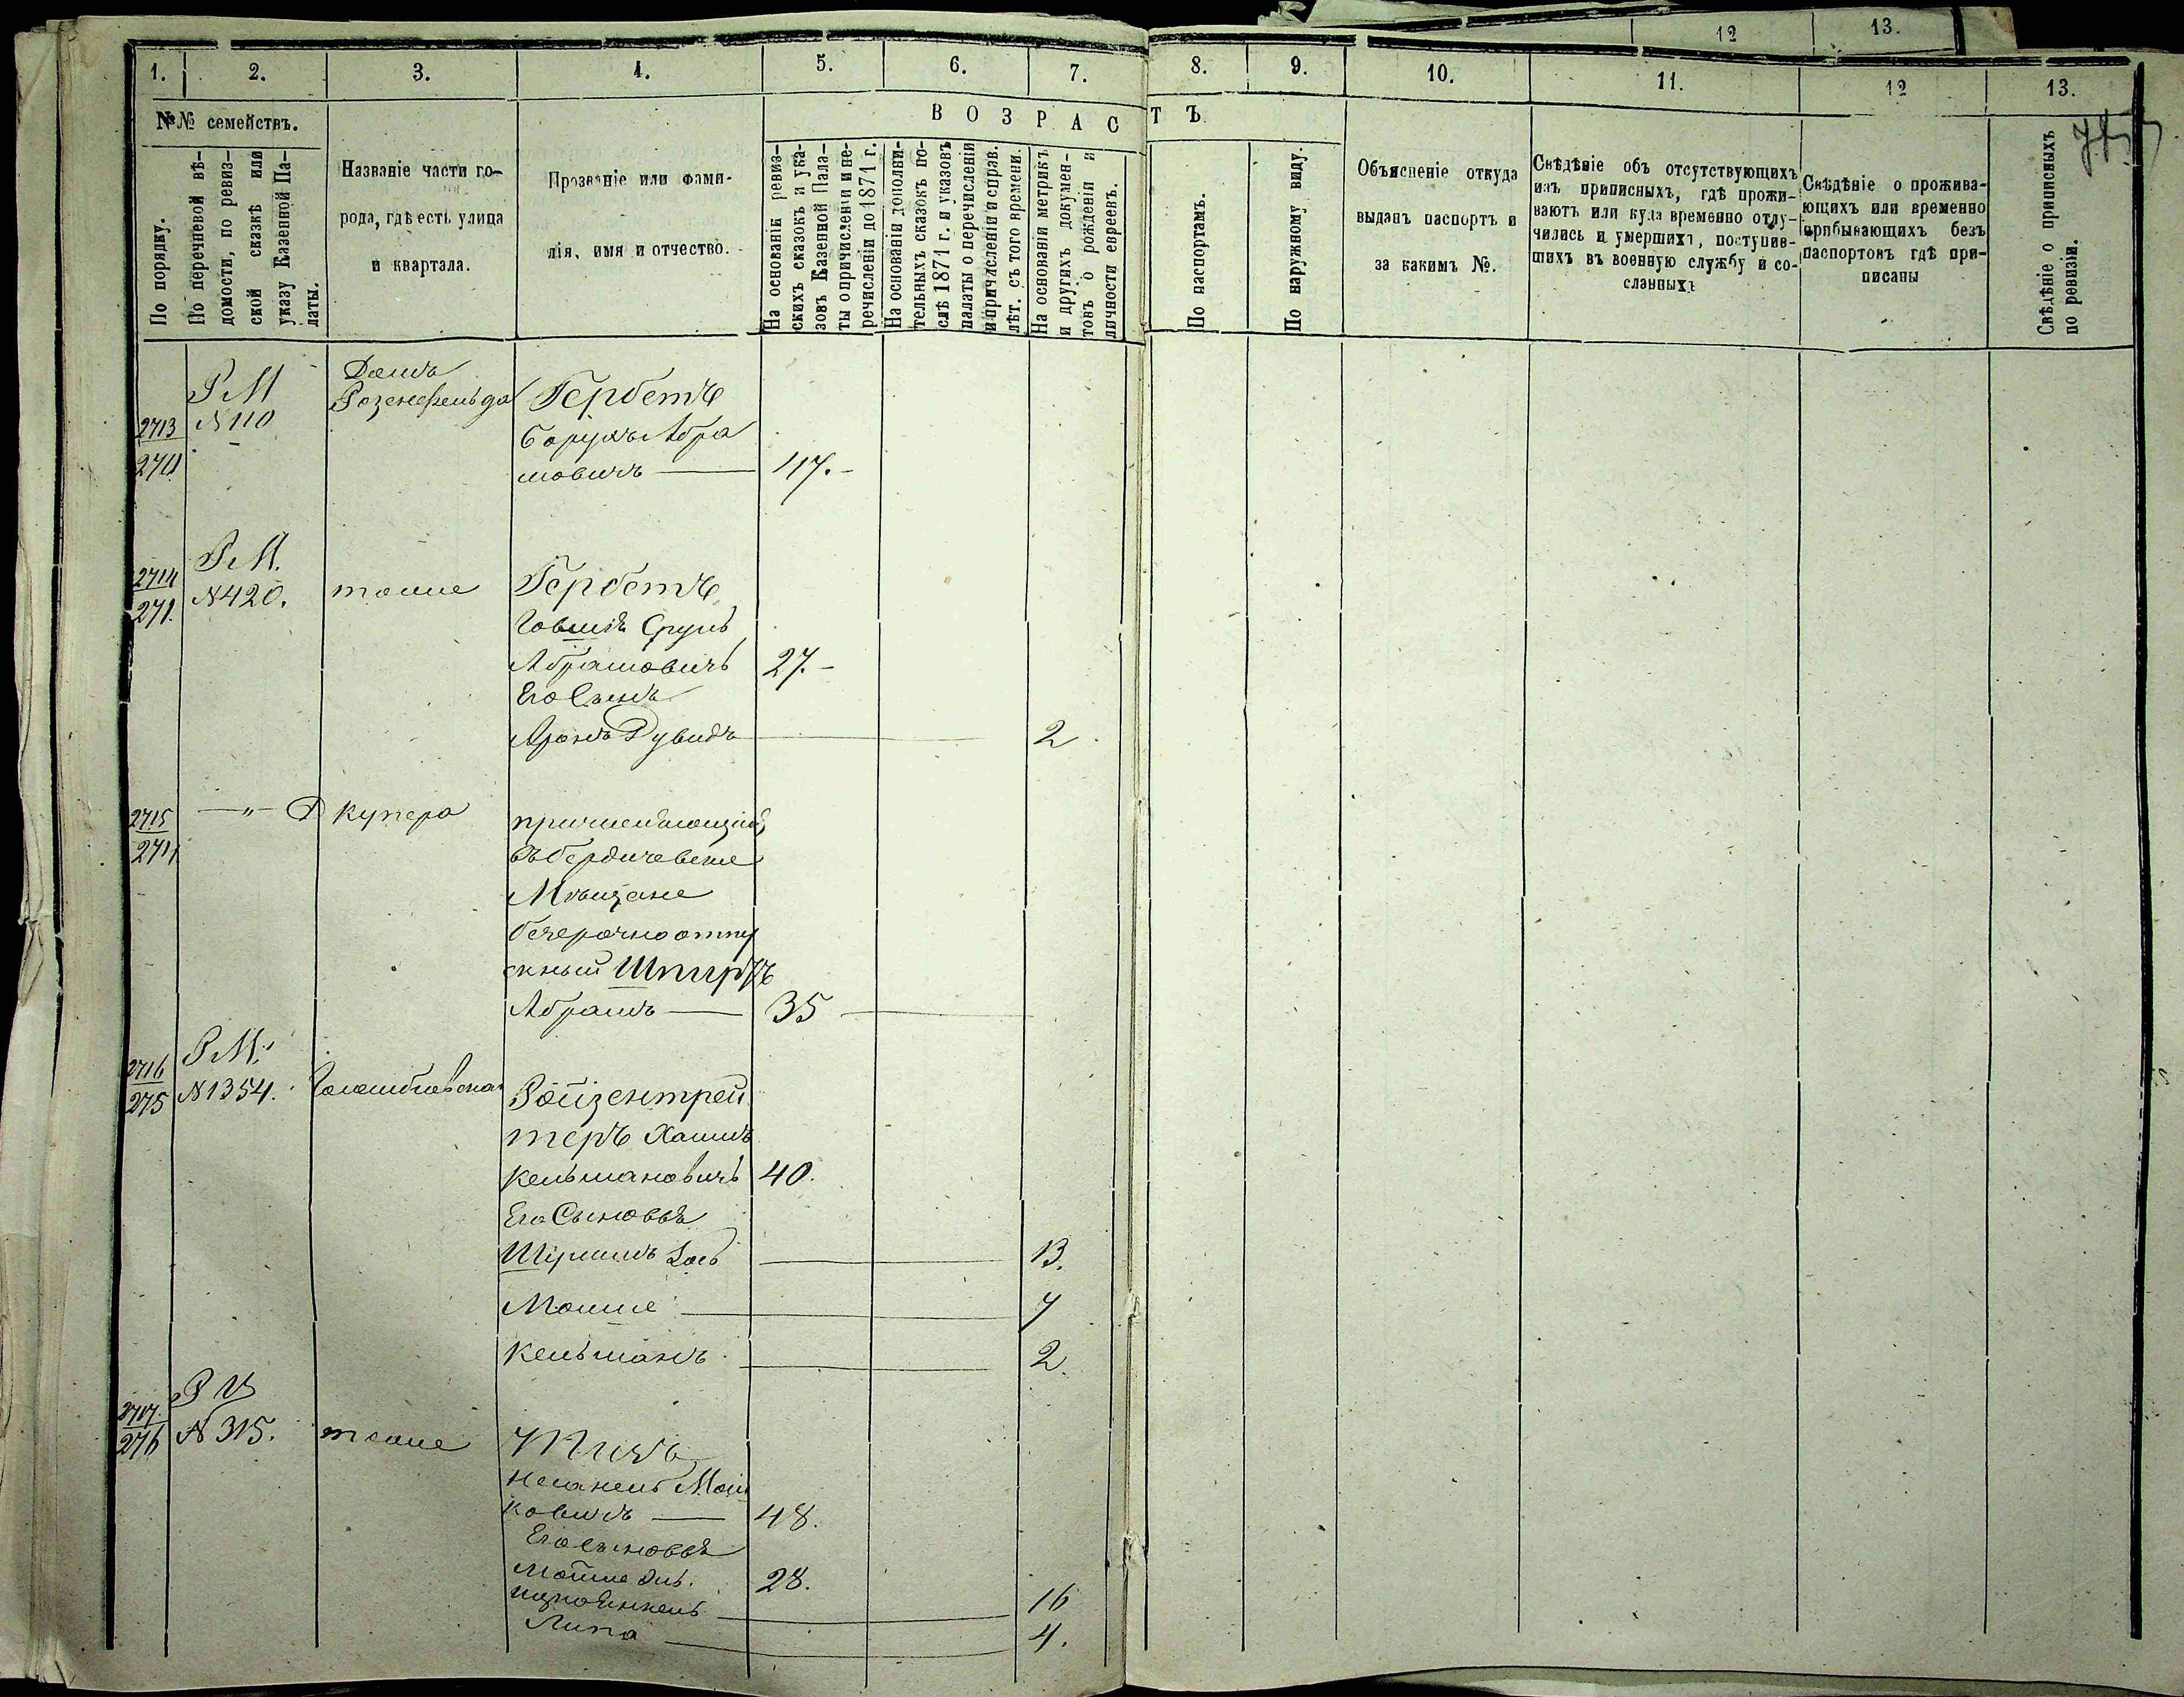 12 13.
1. 2. 3. 4. 5. 6. 7. 8. 9. 10. 11. 12 13.
№№ семействъ.
По порядку.
По перечневой вѣ-
домости, по ревиз-
ской сказкѣ или
указу Казенной Па-
латы.
Названіе части го-
рода, гдѣ есть улица
и квартала.
Прозваніе или фами-
лія, имя и отчество.
ВОЗРАСТЪ
На основаніи ревиз-
скихъ сказокъ и ука-
зовъ Казенной Пала-
ты о причисленіи и пе-
речисленіи до 1871 г.
На основаніи дополни-
тельныхъ сказокъ по-
слѣ 1871 г. и указовъ
палаты о перечисленіи
и причисленіи и справ.
лѣт. съ того времени.
На основаніи метрикъ
и другихъ докумен-
товъ о рожденіи и
личности евреевъ.
По паспортамъ.
По наружному виду.
Объясненіе откуда
выданъ паспортъ и
за какимъ №.
Свѣдѣніе объ отсутствующихъ
изъ приписныхъ, гдѣ прожи-
ваютъ или куда временно отлу-
чились и умершихъ, поступив-
шихъ въ военную службу и со-
сланныхъ
Свѣдѣніе о прожива-
ющихъ или временно
прибывающихъ безъ
паспортовъ гдѣ при-
писаны
Свѣдѣніе о приписныхъ
по ревизіи.
Домъ
РМ Розенфельда Гербетъ
2713 N110
Борухъ Абра
мовичъ 117.
РМ.
2714 N420. тоже Гербетъ
271.
Срулъ
Абрамовичъ 27.
Его Сынъ
Аронъ Дувидъ 2
2715 " Д Купера
2711
Бердичевскіе
Мѣщане
скный Шпиръ
Абрамъ 35
РМ.
2716 N1354. Ройзентрей
275
теръ Хаимъ
Кельмановичъ 40.
Его Сыновья
13.
Мошие 7
Кельманъ 2
2717 N315. тоже
276
ковичъ 48.
Его сыновья
28.
16
Липа 4.